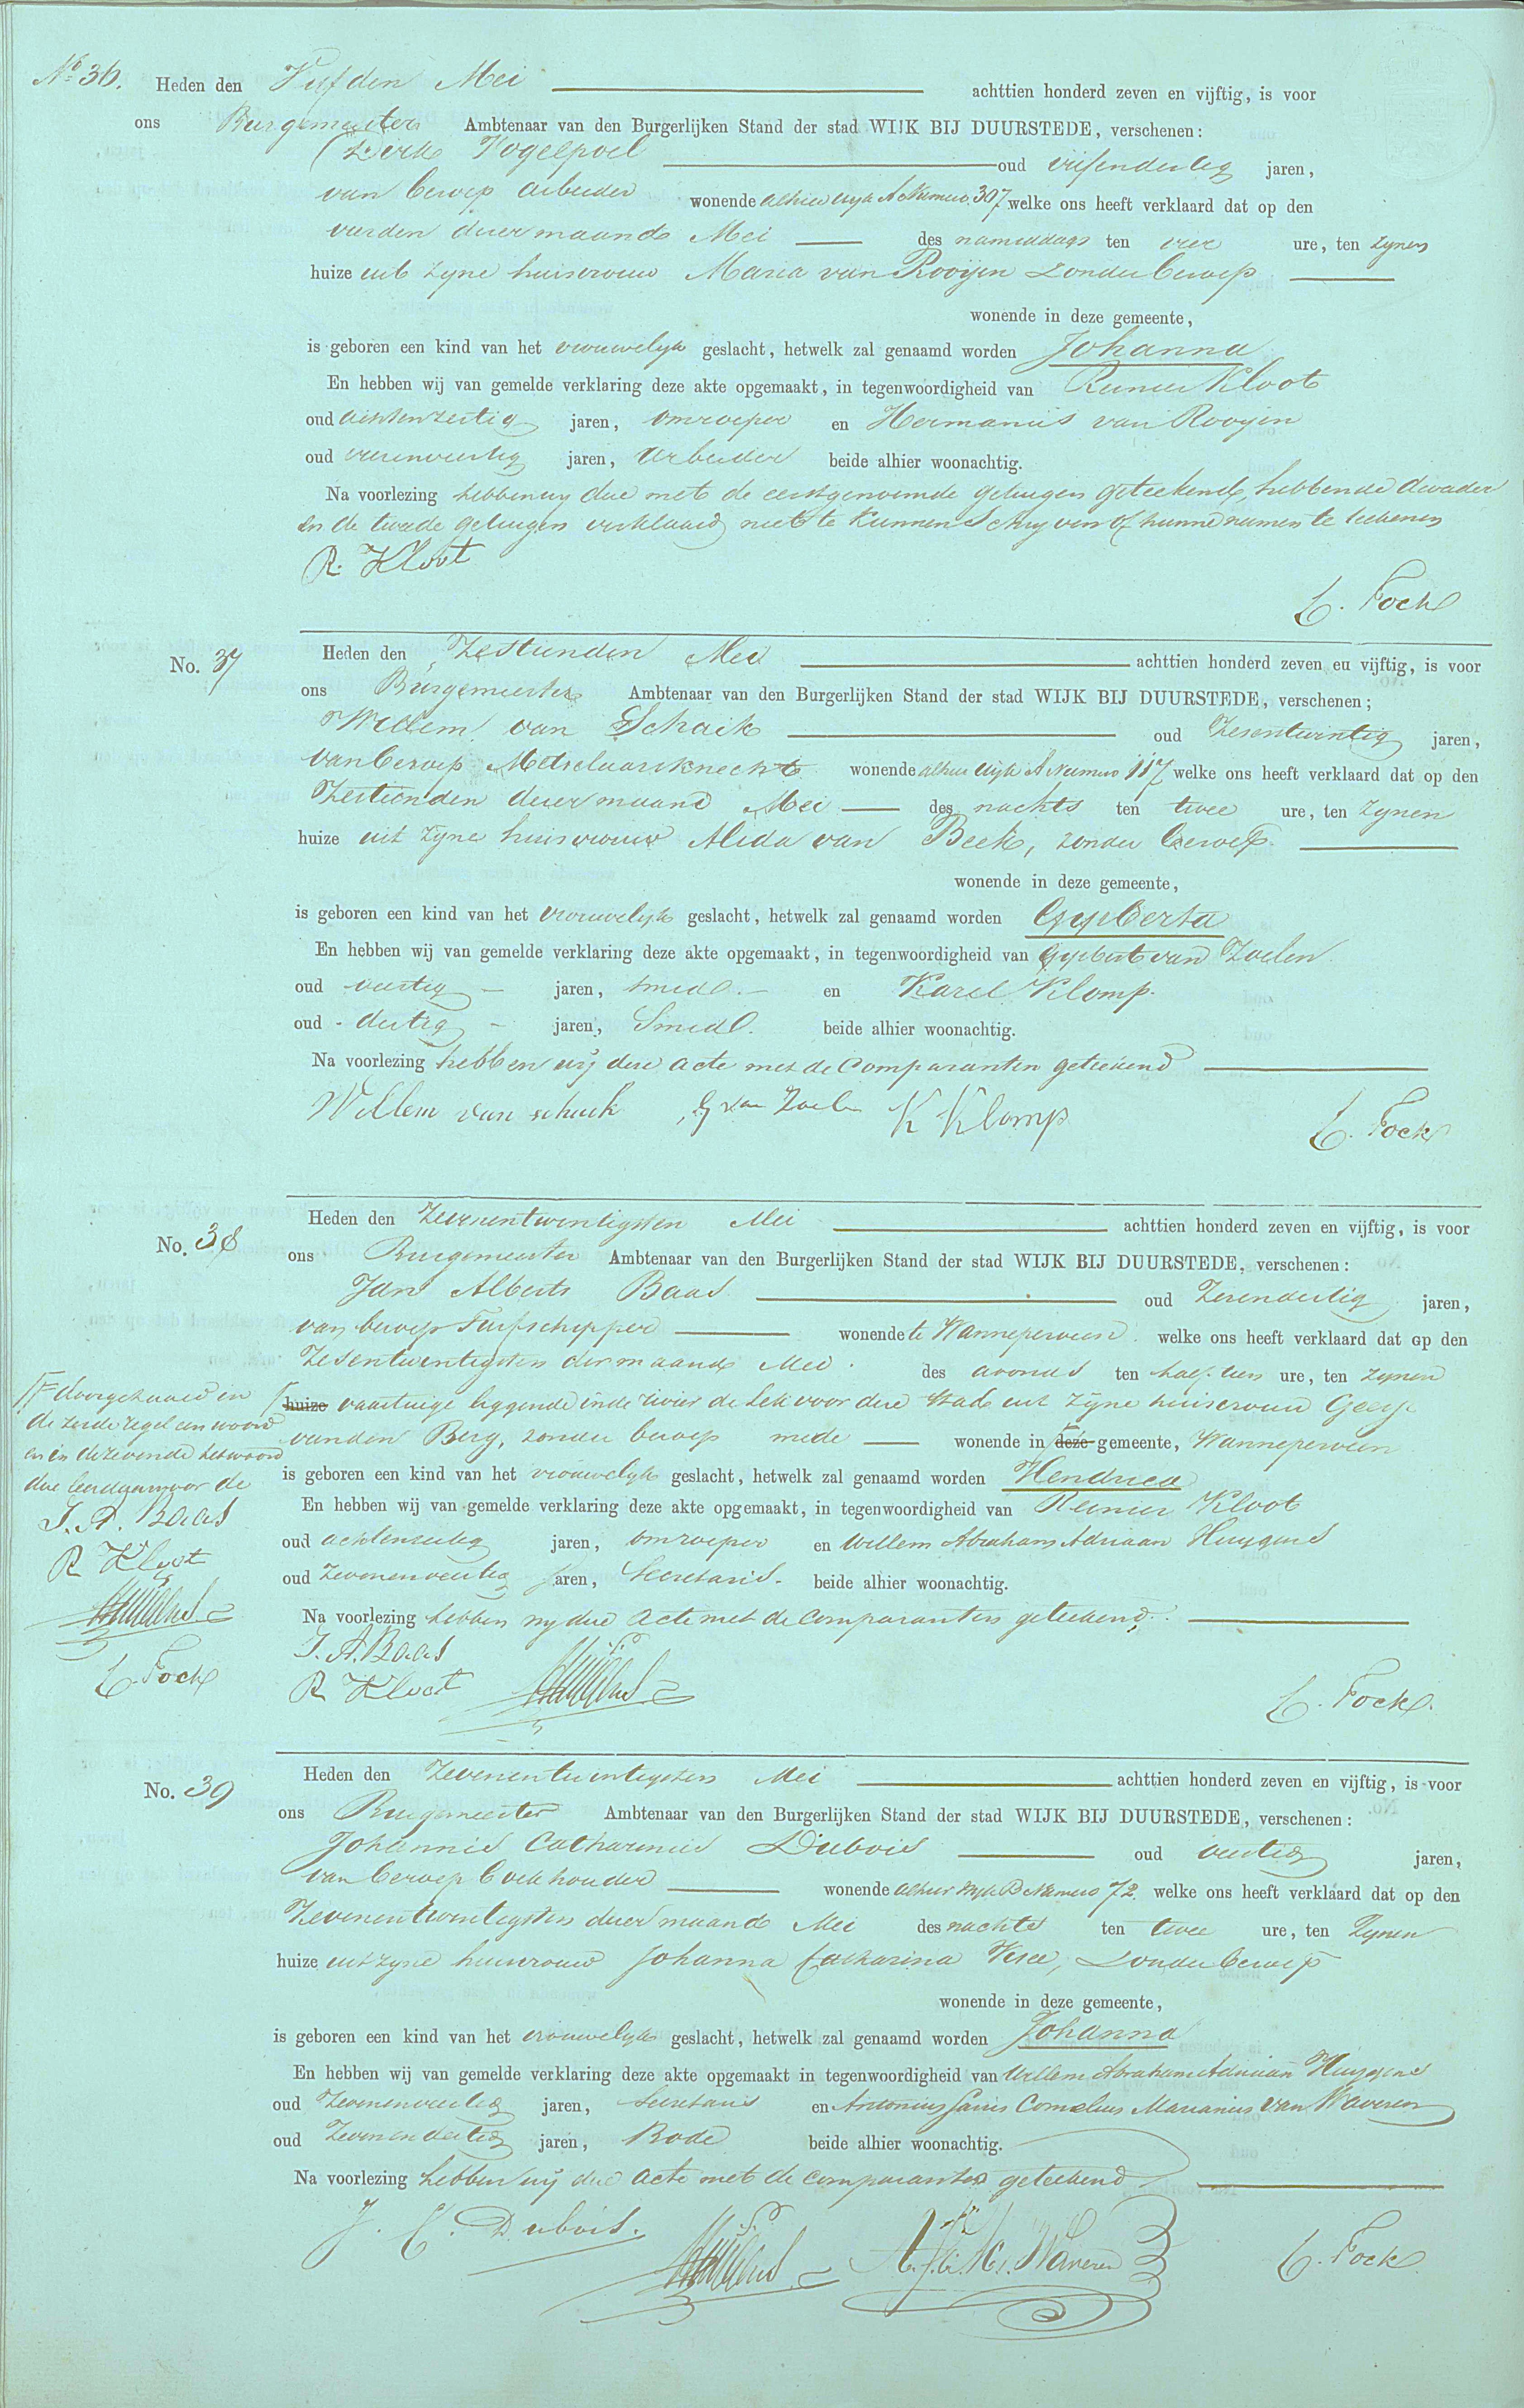 No 36. Heden den Vijfden Mei achttien honderd zeven en vijftig, is voor
ons Burgemeester Ambtenaar van den Burgerlijken Stand der stad WIJK BIJ DUURSTEDE, verschenen:
Derk Vogelpoel oud vijfendertig jaren,
van beroep arbeider wonende alhier wyk A Numero 307 welke ons heeft verklaard dat op den
vierden dezer maand Mei des namiddags ten vier ure, ten zynen
huize uit zyne huisvrouw Maria van Rooijen zonder beroep
wonende in deze gemeente,
is geboren een kind van het vrouwelyk geslacht, hetwelk zal genaamd worden Johanna
En hebben wij van gemelde verklaring deze akte opgemaakt, in tegenwoordigheid van Reinier Kloot
oud achtenzestig jaren, omroeper en Hermanus van Rooijen
oud vierenveertig jaren, arbeider beide alhier woonachtig.
Na voorlezing hebben wy deze met de eerstgenoemde getuigen geteekend, hebbende de vader
en de tweede getuigen verklaard niet te kunnen schryven of hunne namen te teekenen
R. Kloot
L. Fock
No. 37 Heden den Zestienden Mei achttien honderd zeven en vijftig, is voor
ons Burgemeester Ambtenaar van den Burgerlijken Stand der stad WIJK BIJ DUURSTEDE, verschenen;
Willem van Schaik oud Zesentwintig jaren,
van beroep Metselaarsknecht wonende alhier wyk A Numero 117 welke ons heeft verklaard dat op den
Zestienden dezer maand Mei des nachts ten twee ure, ten zynen
huize uit zyne huisvrouw Alida van Beek, zonder beroep
wonende in deze gemeente,
is geboren een kind van het vrouwelyk geslacht, hetwelk zal genaamd worden Gysberta
En hebben wij van gemelde verklaring deze akte opgemaakt, in tegenwoordigheid van Gysbert van Zoelen
oud veertig jaren, smid en Karel Klomp.
oud dertig jaren, Smid. beide alhier woonachtig.
Na voorlezing hebben wij deze acte met de Comparanten geteekend
Willem van schaik G van Zoelen K Klomp
L. Fock
No. 38 Heden den Zevenentwintigsten Mei achttien honderd zeven en vijftig, is voor
ons Burgemeester Ambtenaar van den Burgerlijken Stand der stad WIJK BIJ DUURSTEDE, verschenen:
Jan Alberts Baas oud Zesendertig jaren,
van beroep Turfschipper wonende te Wanneperveen welke ons heeft verklaard dat op den
Zesentwintigsten dezer maand Mei des avonds ten half tien ure, ten zynen
huize vaartuige liggende in de rivier de Lek voor deze stad uit zyne huisvrouw Geesje
van den Berg, zonder beroep mede wonende in deze gemeente, Wanneperveen
is geboren een kind van het vrouwelyk geslacht, hetwelk zal genaamd worden Hendrica
En hebben wij van gemelde verklaring deze akte opgemaakt, in tegenwoordigheid van Reinier Kloot
oud achtenzestig jaren, omroeper en Willem Abraham Adriaan Huygens
oud Zevenenveertig jaren, Secretaris beide alhier woonachtig.
Na voorlezing hebben wy deze acte met de Comparanten geteekend.
J. A. Baas
R Kloot
L. Fock.
doorgehaald en
de zesde regel een woord
en in de zevende het woord
deze goedgekeurd de
J. A. Baas
R Kloot
L. Fock
No. 39 Heden den Zevenentwintigsten Mei achttien honderd zeven en vijftig, is voor
ons Burgemeester Ambtenaar van den Burgerlijken Stand der stad WIJK BIJ DUURSTEDE, verschenen:
Johannes Catharinus Dubois oud veertig jaren,
van beroep boekhouder wonende alhier wyk B Numero 72 welke ons heeft verklaard dat op den
Zevenentwintigsten dezer maand Mei des nachts ten twee ure, ten Zynen
huize uit zyne huisvrouw Johanna Catharina zonder beroep
wonende in deze gemeente,
is geboren een kind van het vrouwelyk geslacht, hetwelk zal genaamd worden Johanna
En hebben wij van gemelde verklaring deze akte opgemaakt in tegenwoordigheid van Willem Abraham Adriaan Huygens
oud Zevenenveertig jaren, Secretaris en Antonius Cornelius Marianus van Waveren
oud Zevenendertig jaren, Bode beide alhier woonachtig.
Na voorlezing hebben wij deze acte met de comparanten geteekend
J. C. Dubois. Waveren L. Fock